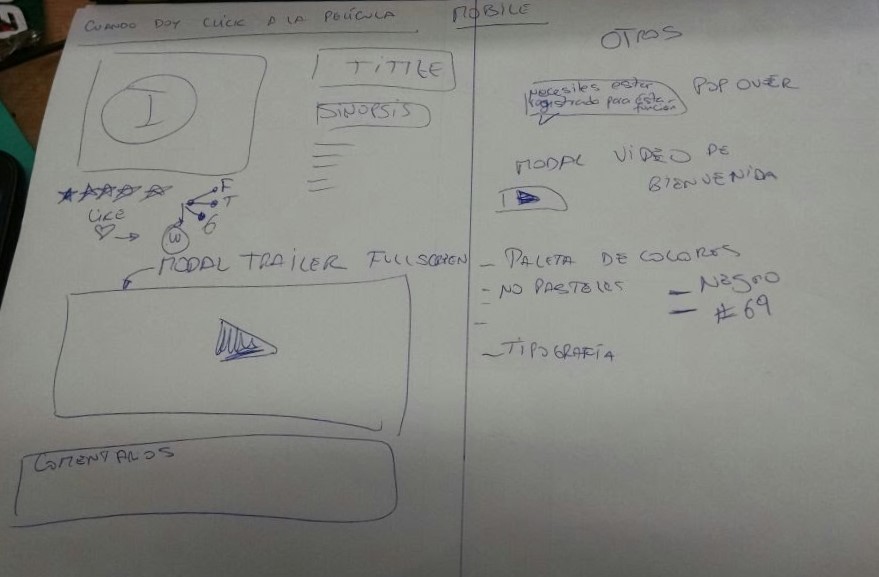 CUANDO DOY CLICK A LA PELÍCULA
MOBILE
I
TITTLE
SINOPSIS
F
T
G
LIKE
W
MODAL TRAILER FULLSCREEN
COMENTARIOS
OTROS
Necesites estar
registrado para esta
función
POP OVER
MODAL VIDEO DE
BIENVENIDA
- PALETA DE COLORES
- NO PASTELES
- NEGRO
- #69
- TIPOGRAFÍA